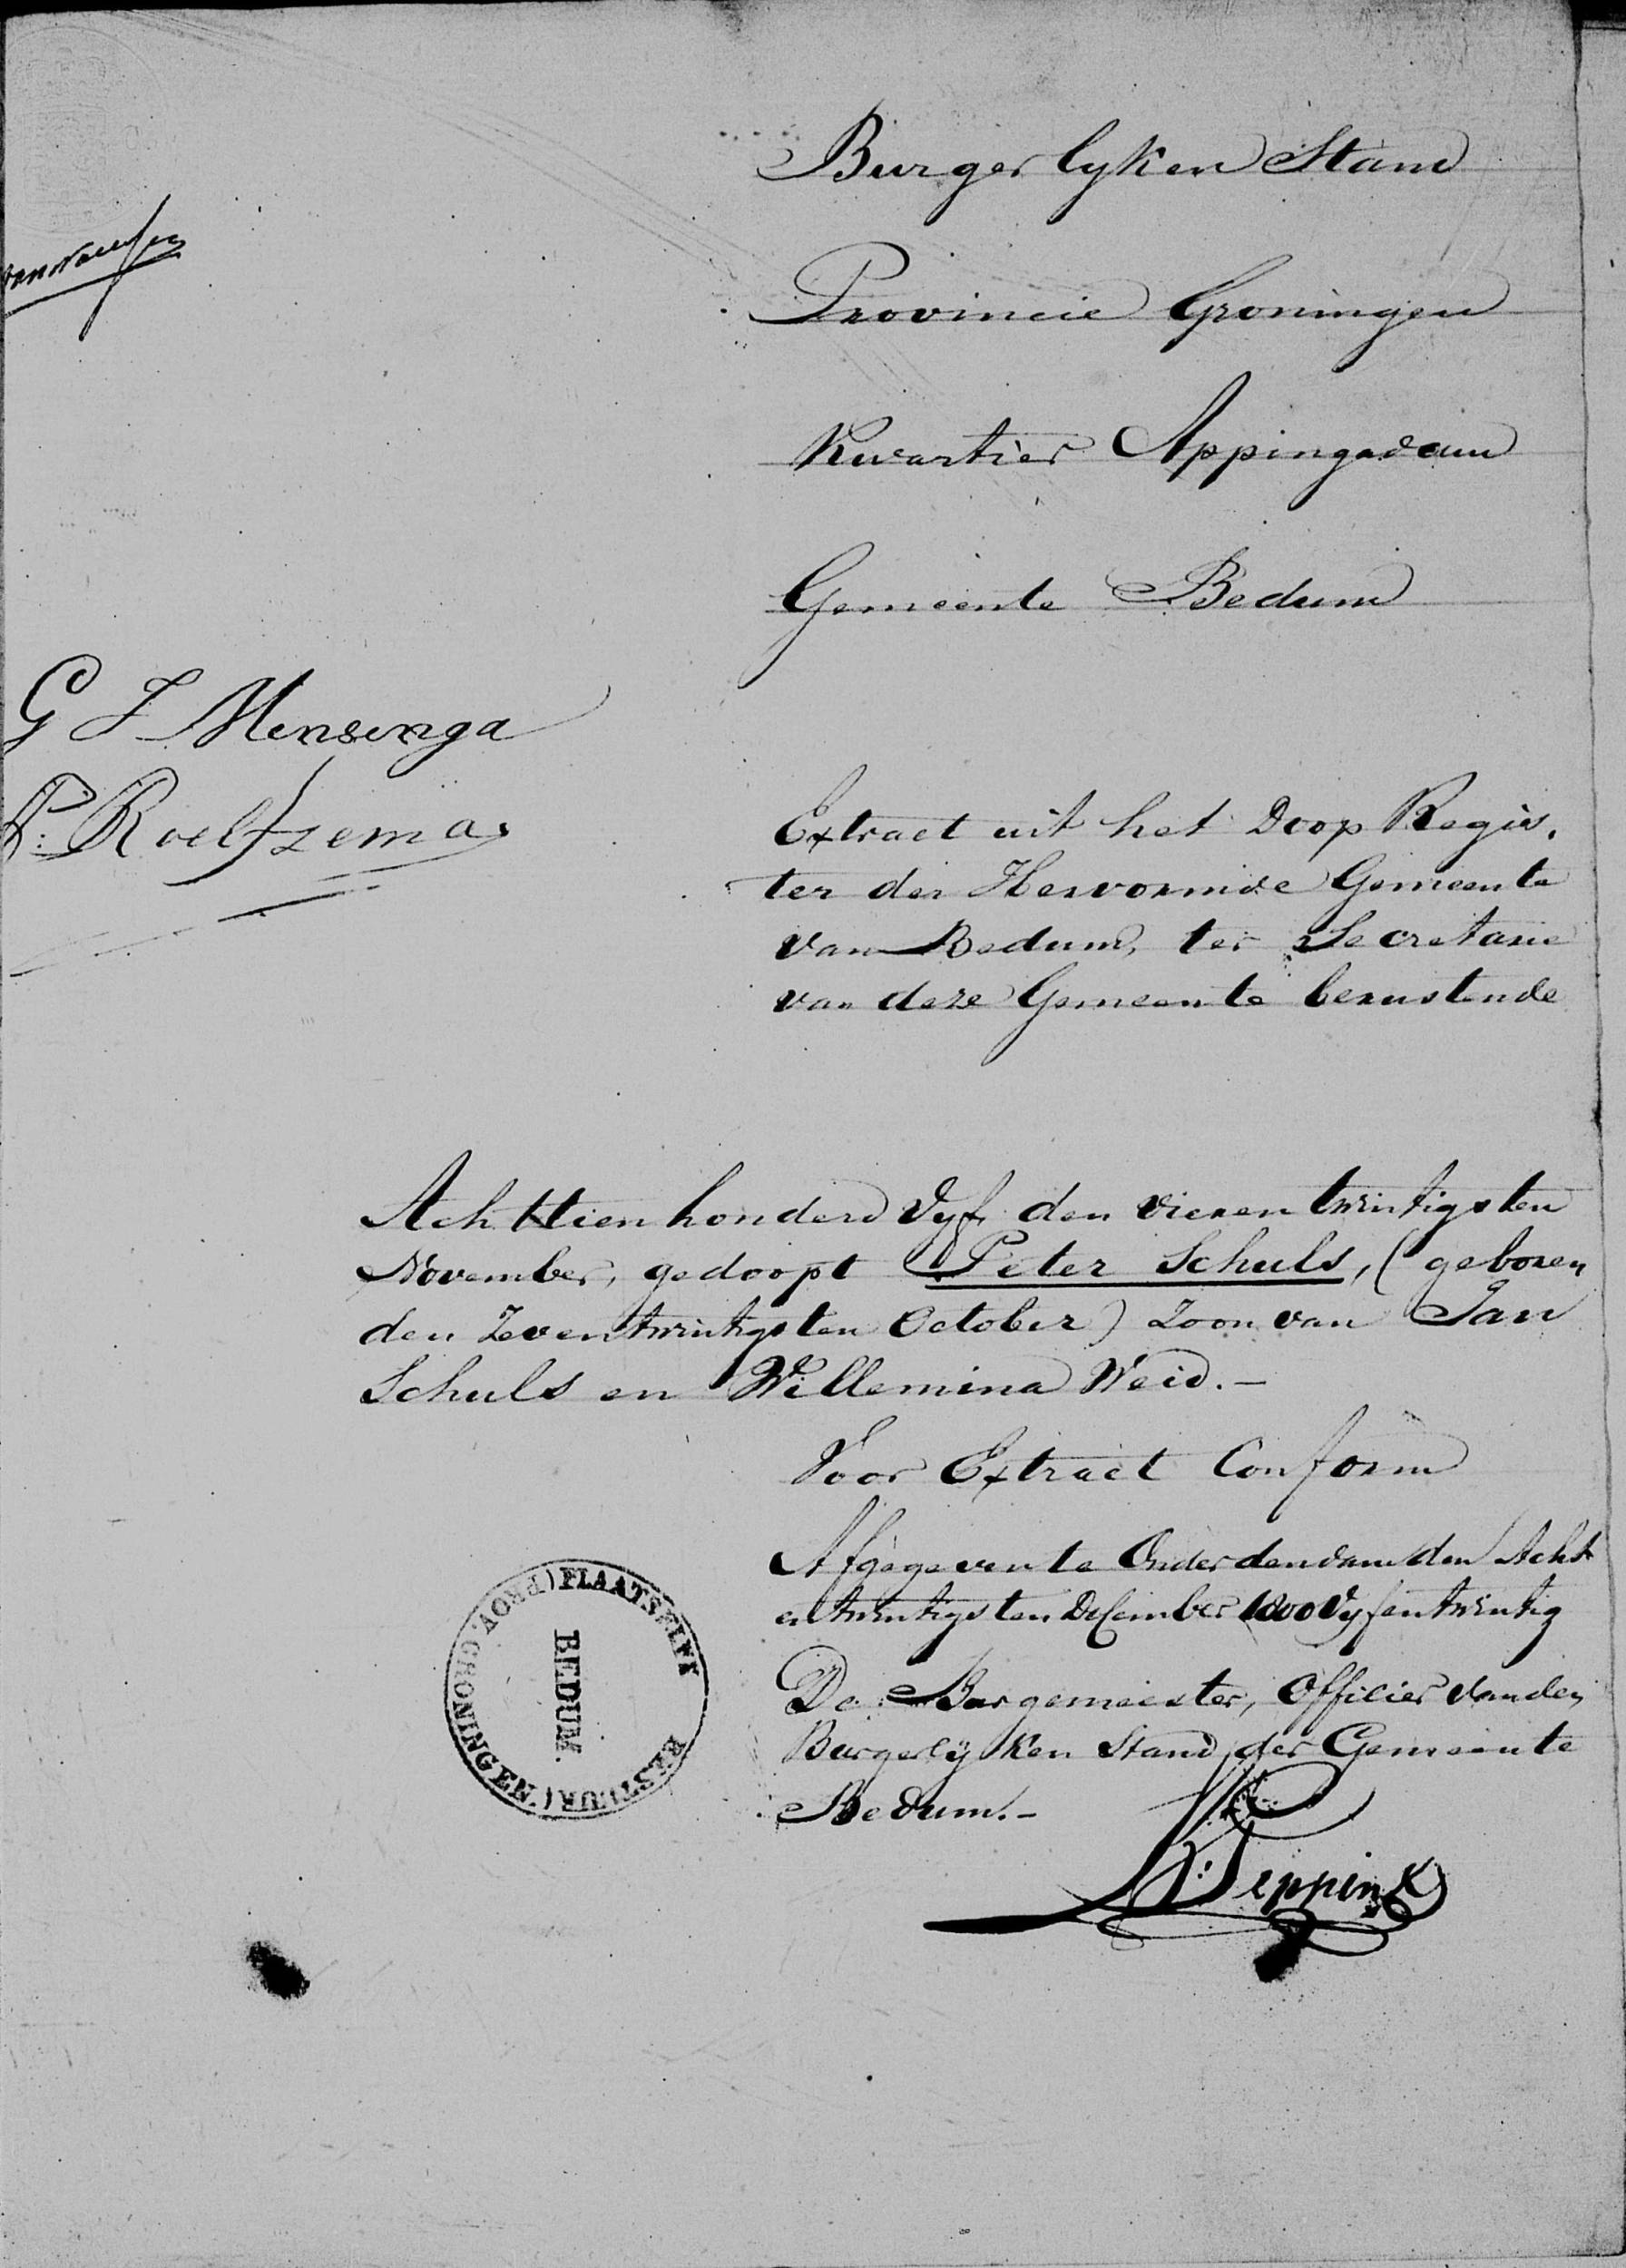 Burgerlyken Stand
Provincie Groningen
Kwartier Appingadam
Gemeente Bedum
G J Mensinga
P. Roelfzema
Extract uit het Doop Regis,
ter der Hervormde Gemeente
van Bedum, ter Secretarie
van deze Gemeente berustende
Achttien honderd Vyf den vierentwintigsten
November, gedoopt Peter Schuls, (geboren
den Zeventwintigsten October) Zoon van Jan
Schuls en Willemina Weid.-
Voor Extract Conform
Afgegeven te Onderdendam den Acht
entwintigsten December 1800 Vyfentwintig
De Burgemeester, Officier van den
Burgerlijken Stand, der Gemeente
Bedum.-
PLAATSELYK BESTUUR (PROV. GRONINGEN)
BEDUM.